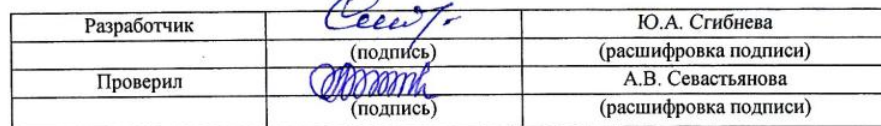 Разработчик Ю.А. Сгибнева
(подпись) (расшифровка подписи)
Проверил А.В. Севастьянова
(подпись) (расшифровка подписи)